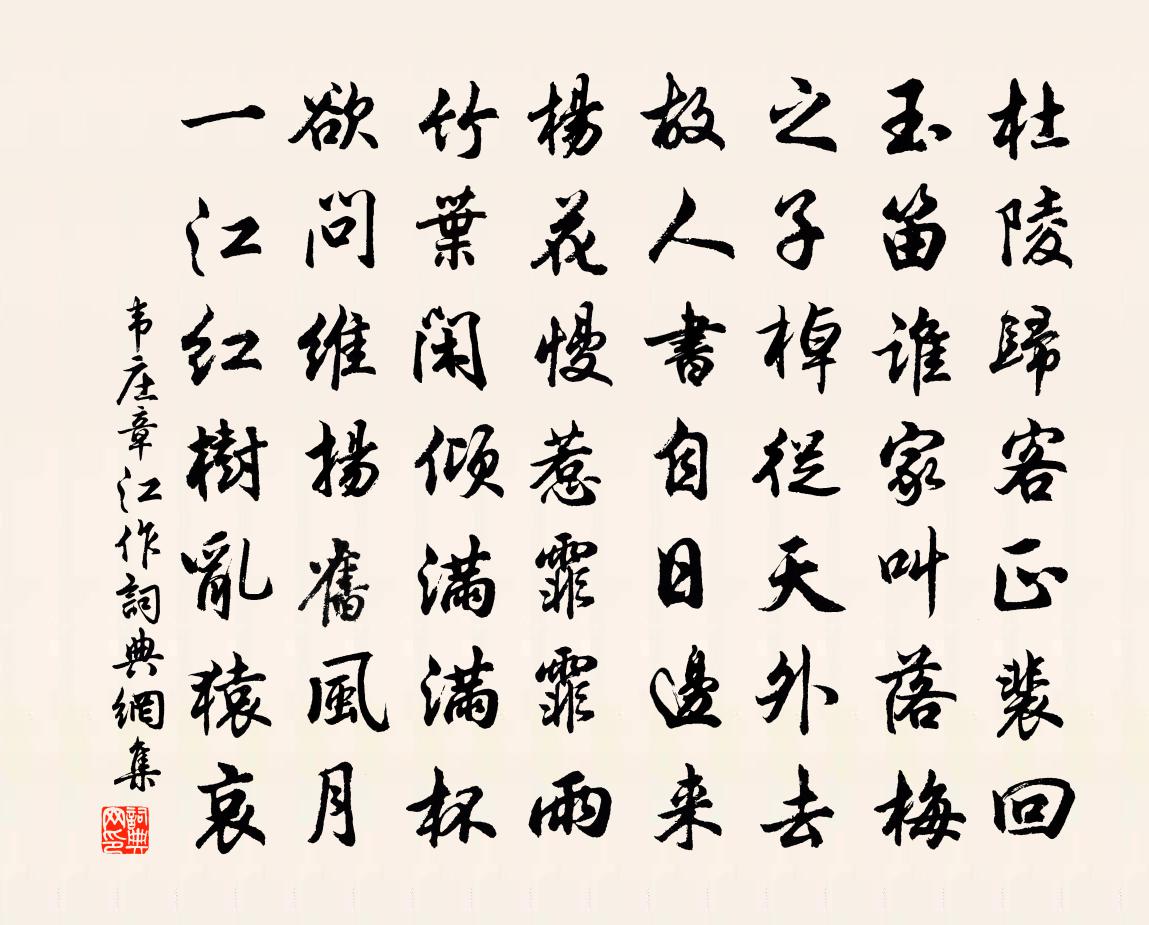 杜陵歸客正裴回
玉笛誰家叫落梅
之子棹從天外去
故人書自日邊来
楊花慢惹霏霏雨
竹葉閑傾滿滿杯
欲問維揚舊風月
一江紅樹亂猿哀
韦庄章江作詞典網集
詞典網印